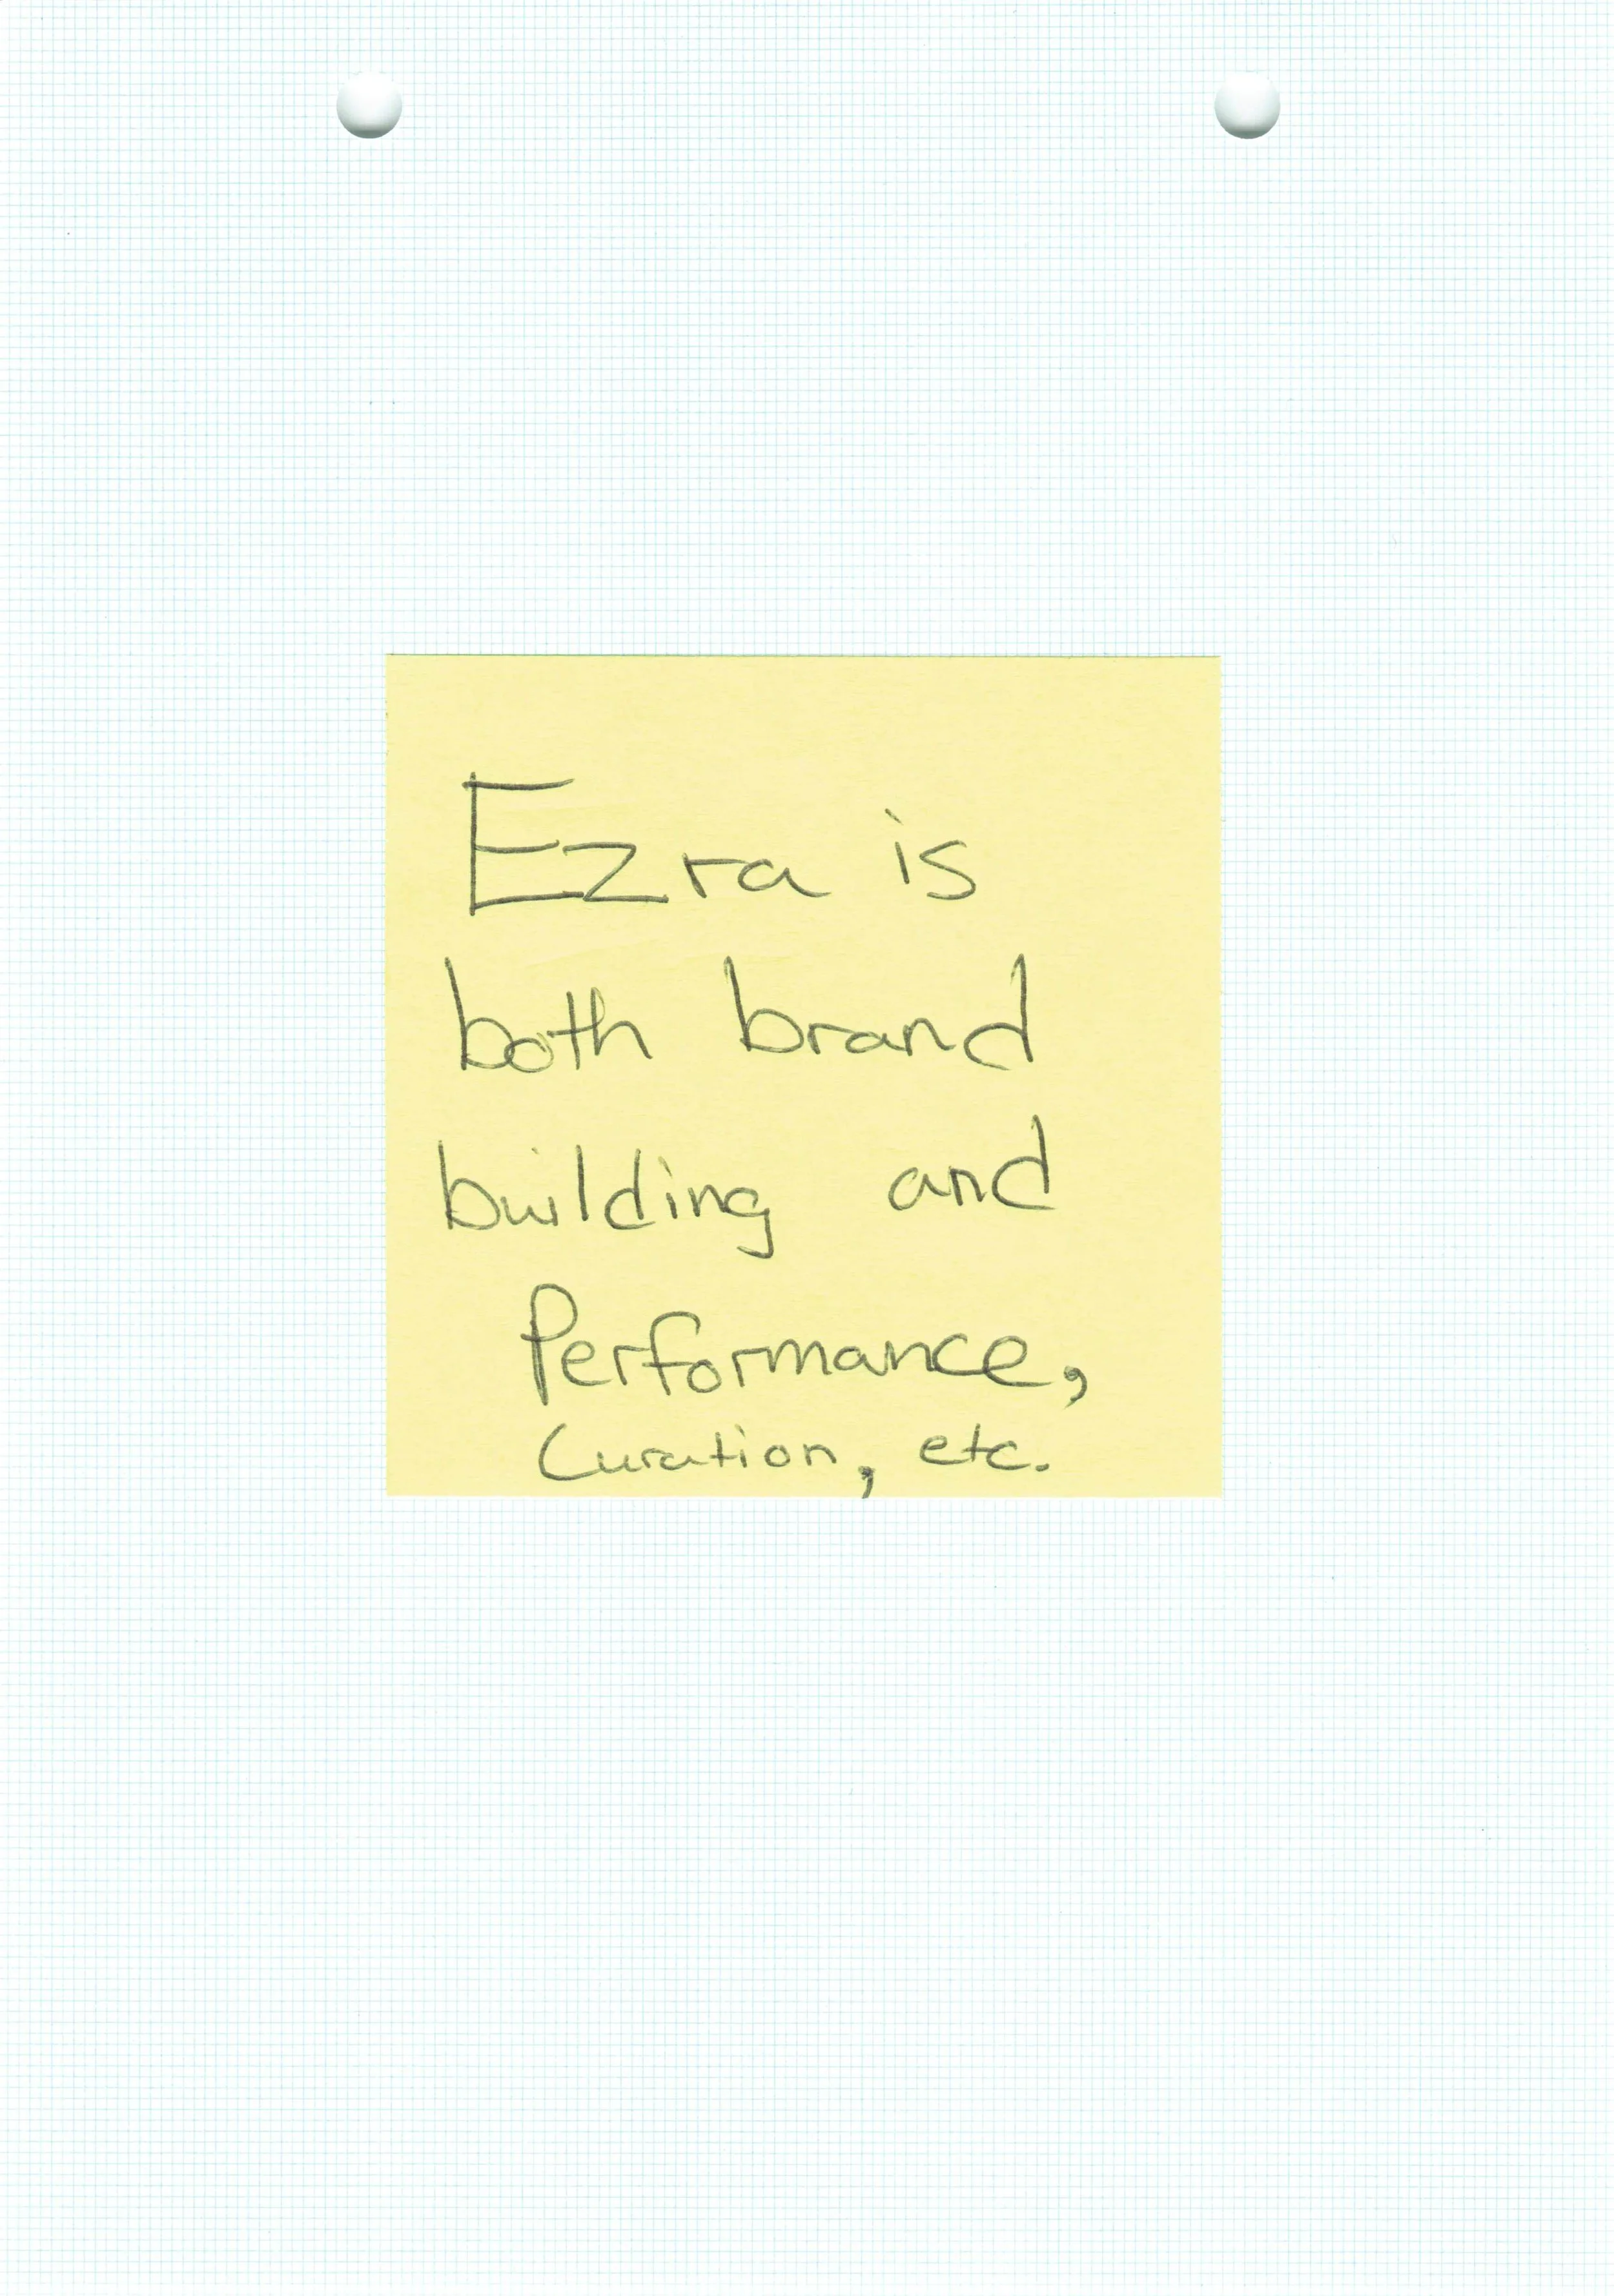 Ezra is
both brand
building and
Performance,
Curation, etc.